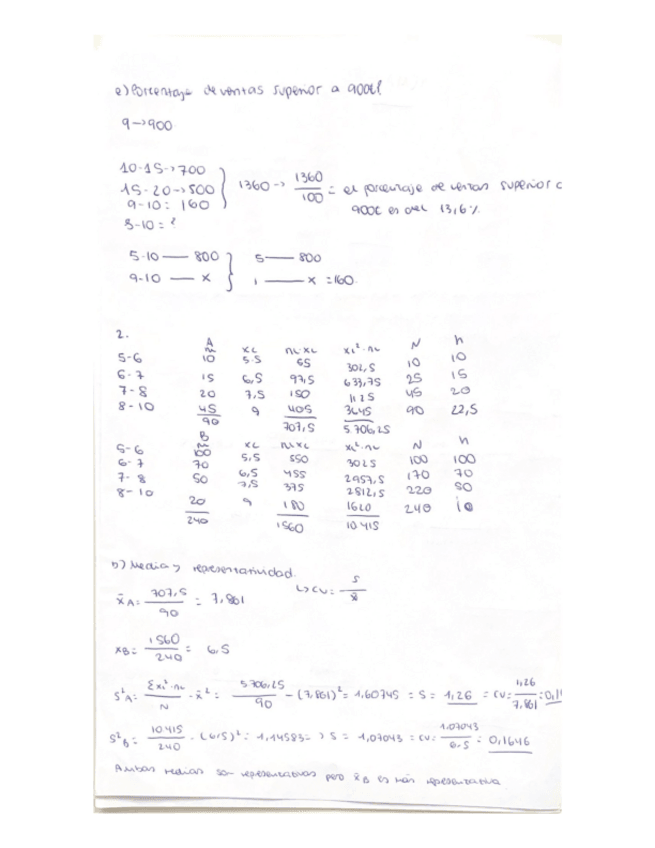 e) Porcentaje de ventas superior a 900€
9→900
10-15→700
15-20→500
9-10 = 160
1360→ 1360/100 = el porcentaje de ventas superior a
900€ es del 13,6%
5-10 — 800
9-10 — x
5 — 800
1 — x = 160.
2.
A
ni xi ni·xi xi²·ni N h
5-6 10 5.5 55 302,5 10 10
6-7 15 6,5 97,5 633,75 25 15
7-8 20 7,5 150 1125 45 20
8-10 45 9 405 3645 90 22,5
90 707,5 5706,25
B
xi ni·xi xi²·ni N h
5-6 100 5,5 550 3025 100 100
6-7 70 6,5 455 2957,5 170 70
7-8 50 7,5 375 2812,5 220 50
8-10 20 9 180 1620 240 10
240 1560 10415
b) Media y representatividad.
↳CV= S/x̄
x̄A= 707,5/90 = 7,861
xB= 1560/240 = 6,5
S²A= Σxi²·ni/N - x̄² = 5706,25/90 - (7,861)² = 1,60745 = S = 1,26 = CV= 1,26/7,861 =
S²B= 10415/240 - (6,5)² = 1,14583 => S = 1,07043 = CV= 1.07043/6,5 = 0,1646
Ambas medias son representativas pero x̄B es más representativa